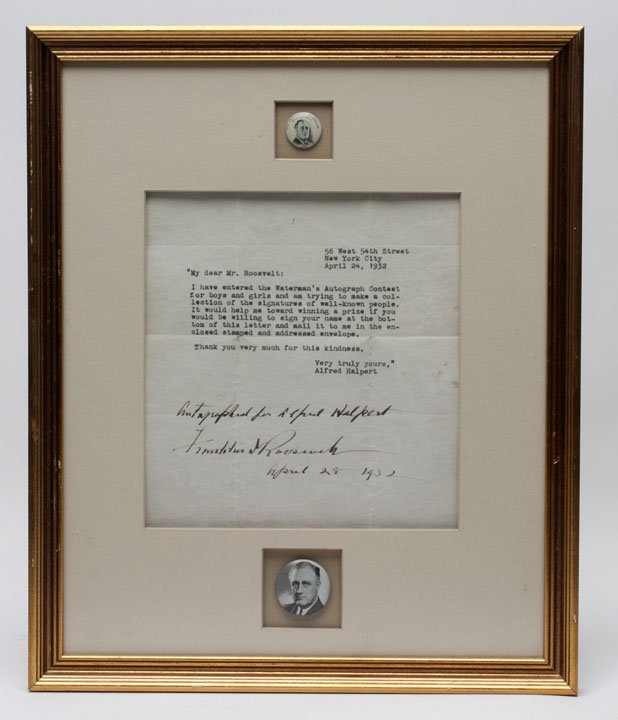 56 West 54th Street
New York City
April 24, 1932
"My dear Mr. Roosevelt:
I have entered the Waterman's Autograph Contest
for boys and girls and am trying to make a col-
lection of the signatures of well-known people.
It would help me toward winning a prize if you
would be willing to sign your name at the bot-
tom of this letter and mail it to me in the en-
closed stamped and addressed envelope.
Thank you very much for this kindness.
Very truly yours,"
Alfred Halpert
Autographed for Alfred Halpert
Franklin D Roosevelt
April 28 1932